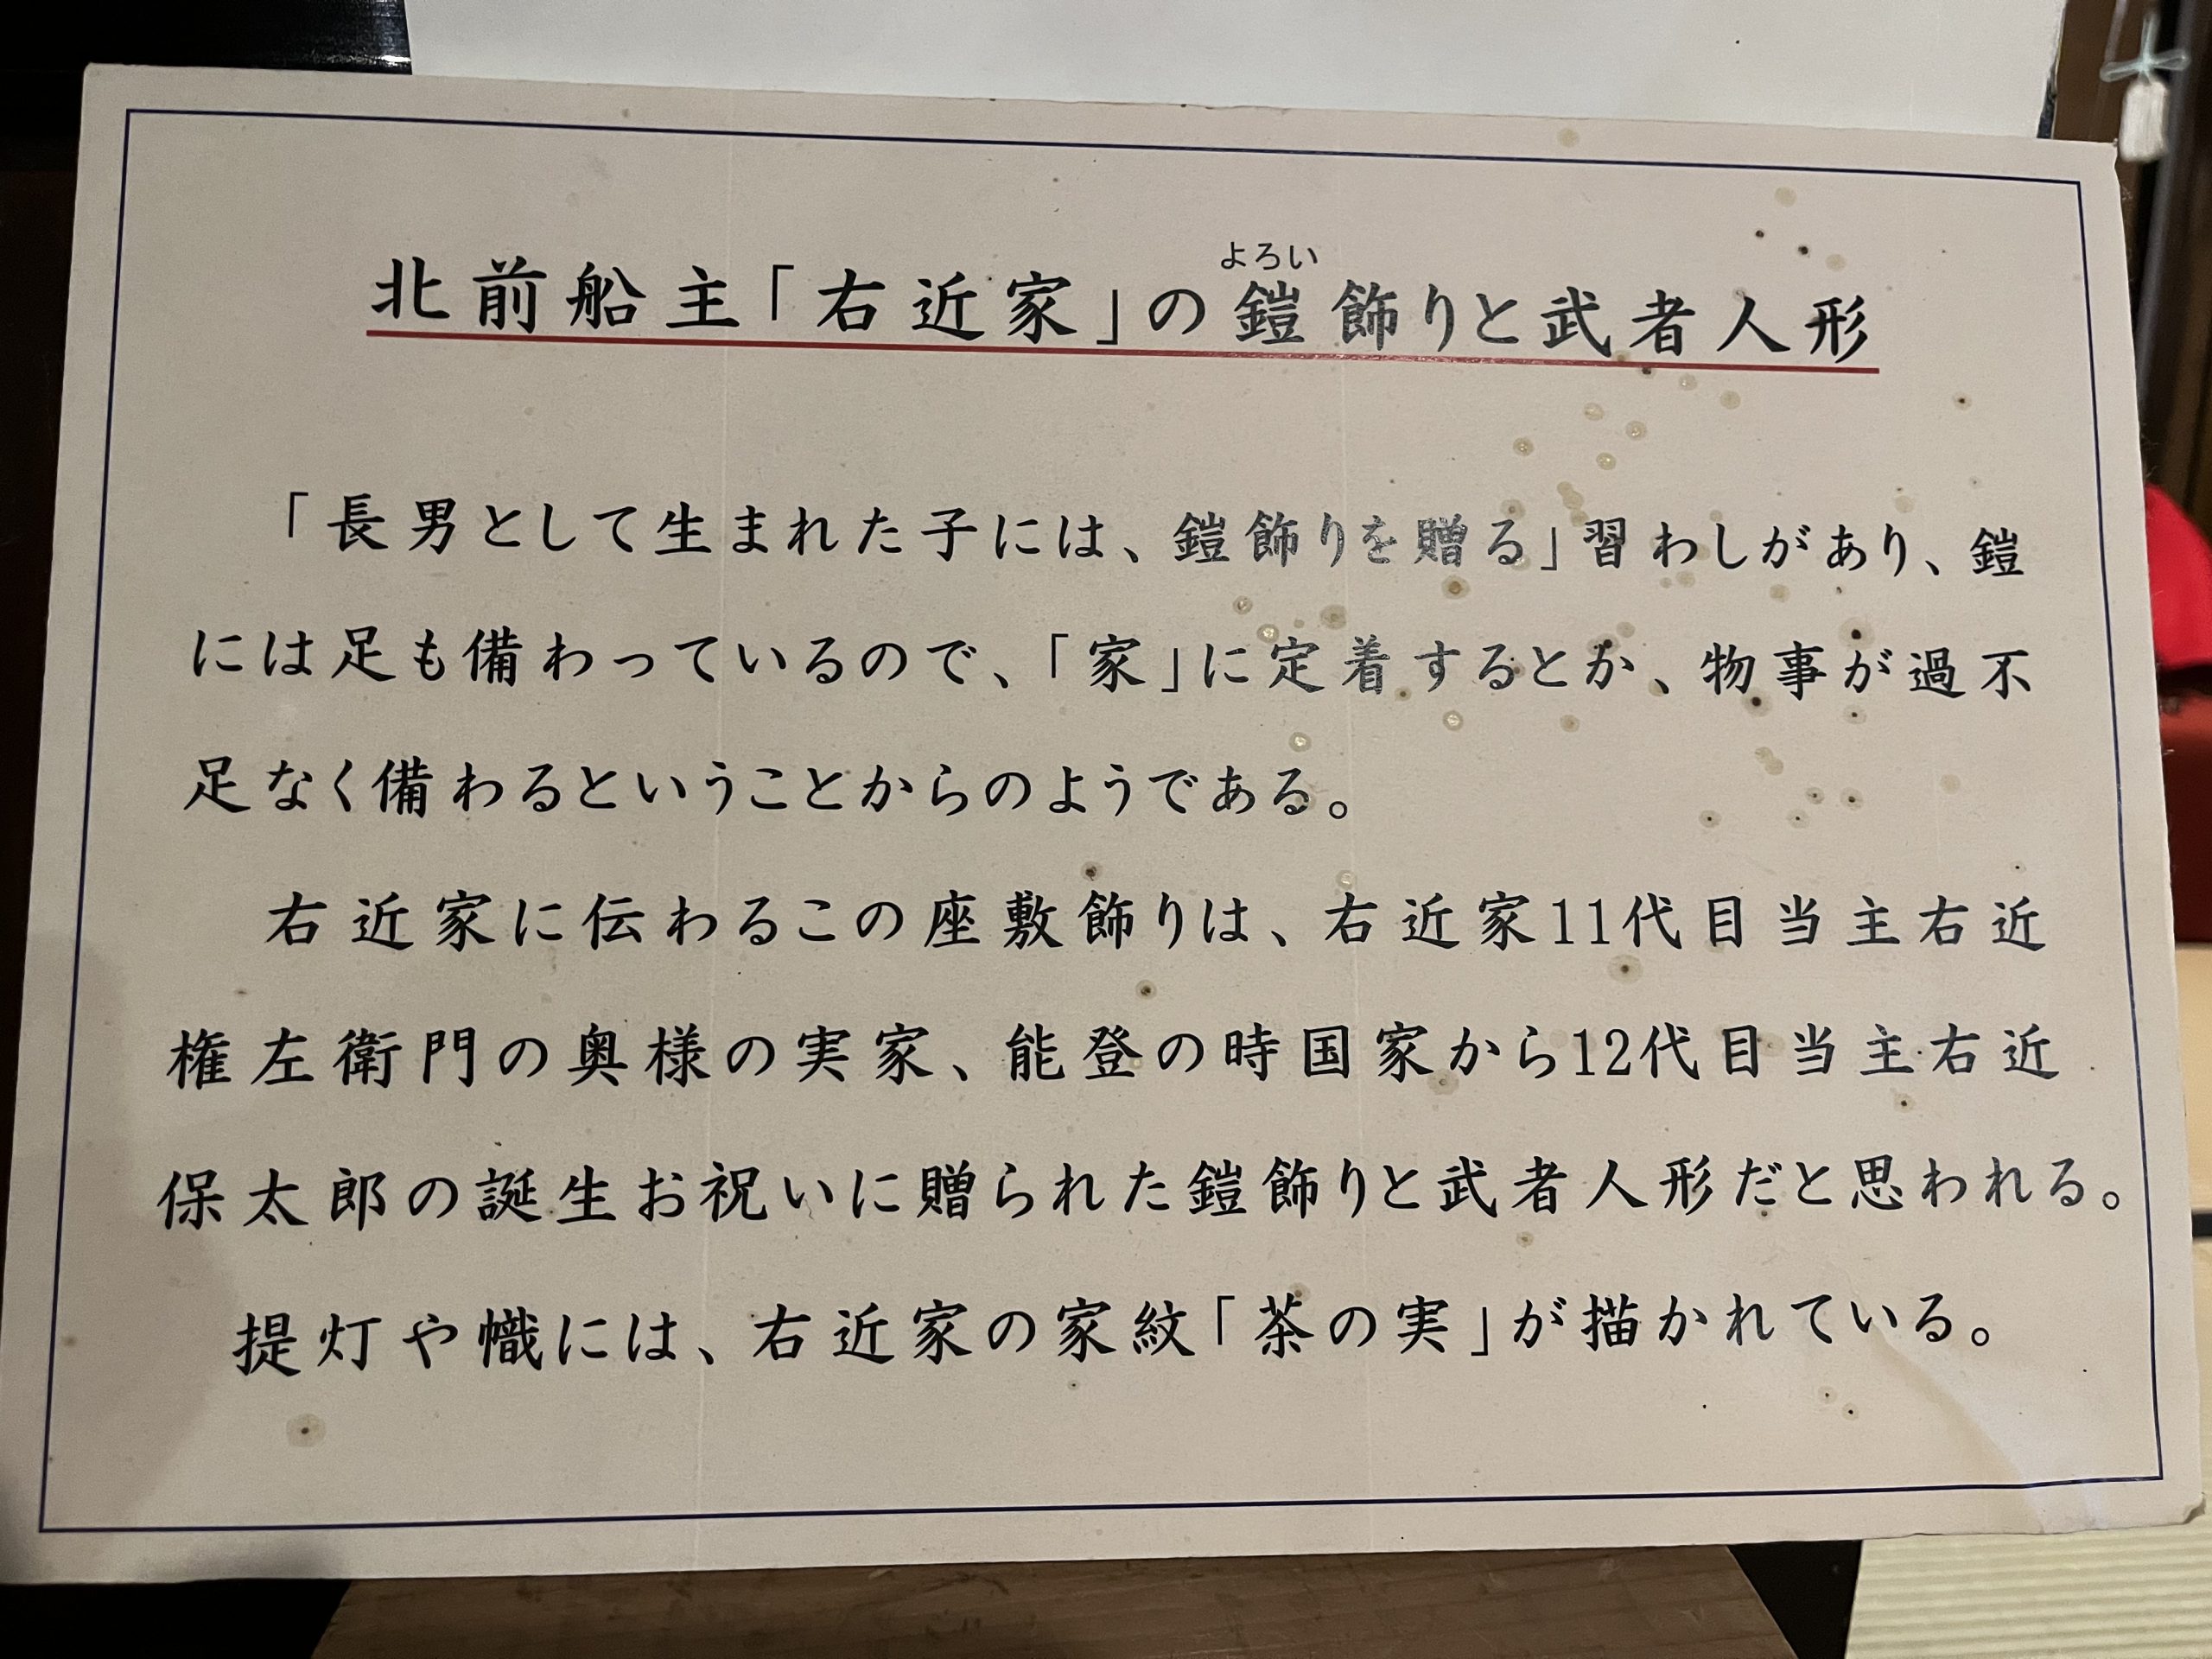 北前船主「右近家」の鎧飾りと武者人形
よろい
「長男として生まれた子には、鎧飾りを贈る」習わしがあり、鎧
には足も備わっているので、「家」に定着するとか、物事が過不
足なく備わるということからのようである。
右近家に伝わるこの座敷飾りは、右近家11代目当主右近
権左衛門の奥様の実家、能登の時国家から12代目当主右近
保太郎の誕生お祝いに贈られた鎧飾りと武者人形だと思われる。
提灯や幟には、右近家の家紋「茶の実」が描かれている。